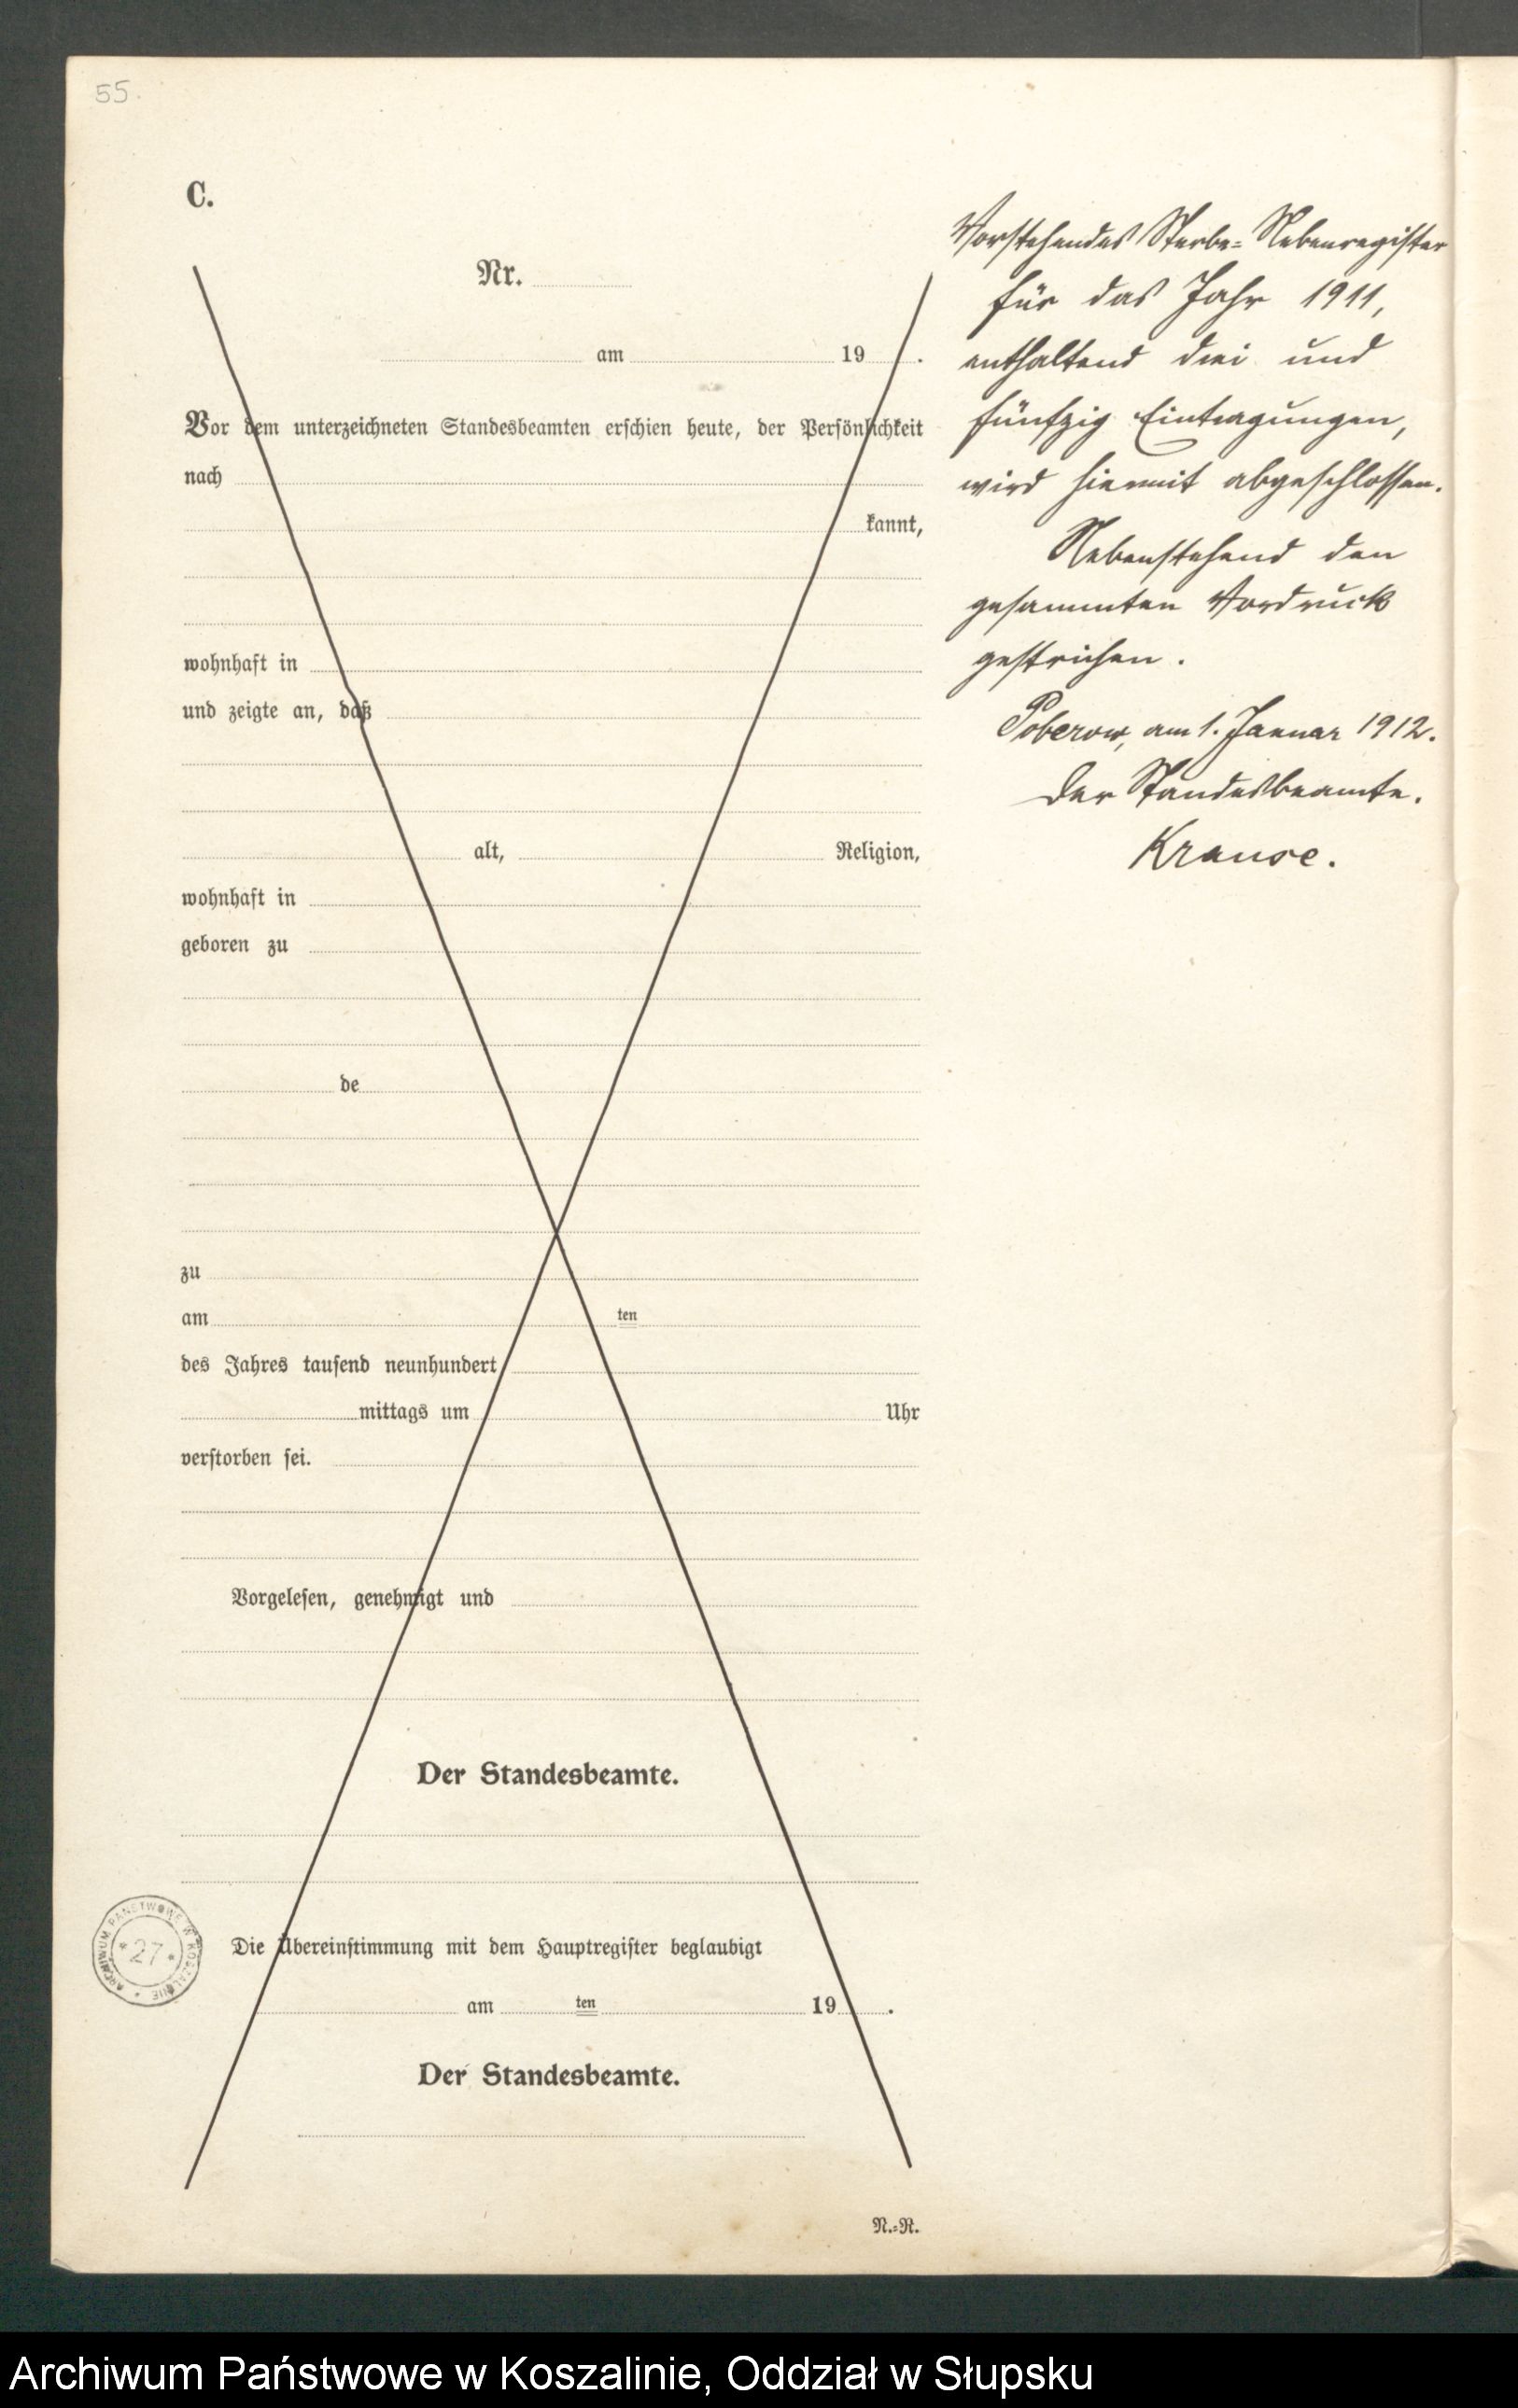 55.
C.
Nr.
am 19 .
Vor dem unterzeichneten Standesbeamten erschien heute, der Persönlichkeit
nach
kannt,
wohnhaft in
und zeigte an, daß
alt, Religion,
wohnhaft in
geboren zu
de
zu
am ten
des Jahres tausend neunhundert
mittags um Uhr
verstorben sei.
Vorgelesen, genehmigt und
Der Standesbeamte.
Die Übereinstimmung mit dem Hauptregister beglaubigt
am ten 19 .
Der Standesbeamte.
N.=R.
Vorstehendes Sterbe=Nebenregister
für das Jahr 1911,
enthaltend drei und
fünfzig Eintragungen,
wird hiermit abgeschlossen.
Nebenstehend den
gesammten Vordruck
gestrichen.
Poberow, am 1. Januar 1912.
Der Standesbeamte.
Krause.
ARCHIWUM PAŃSTWOWE W KOSZALINIE
* 27 *
Archiwum Państwowe w Koszalinie, Oddział w Słupsku